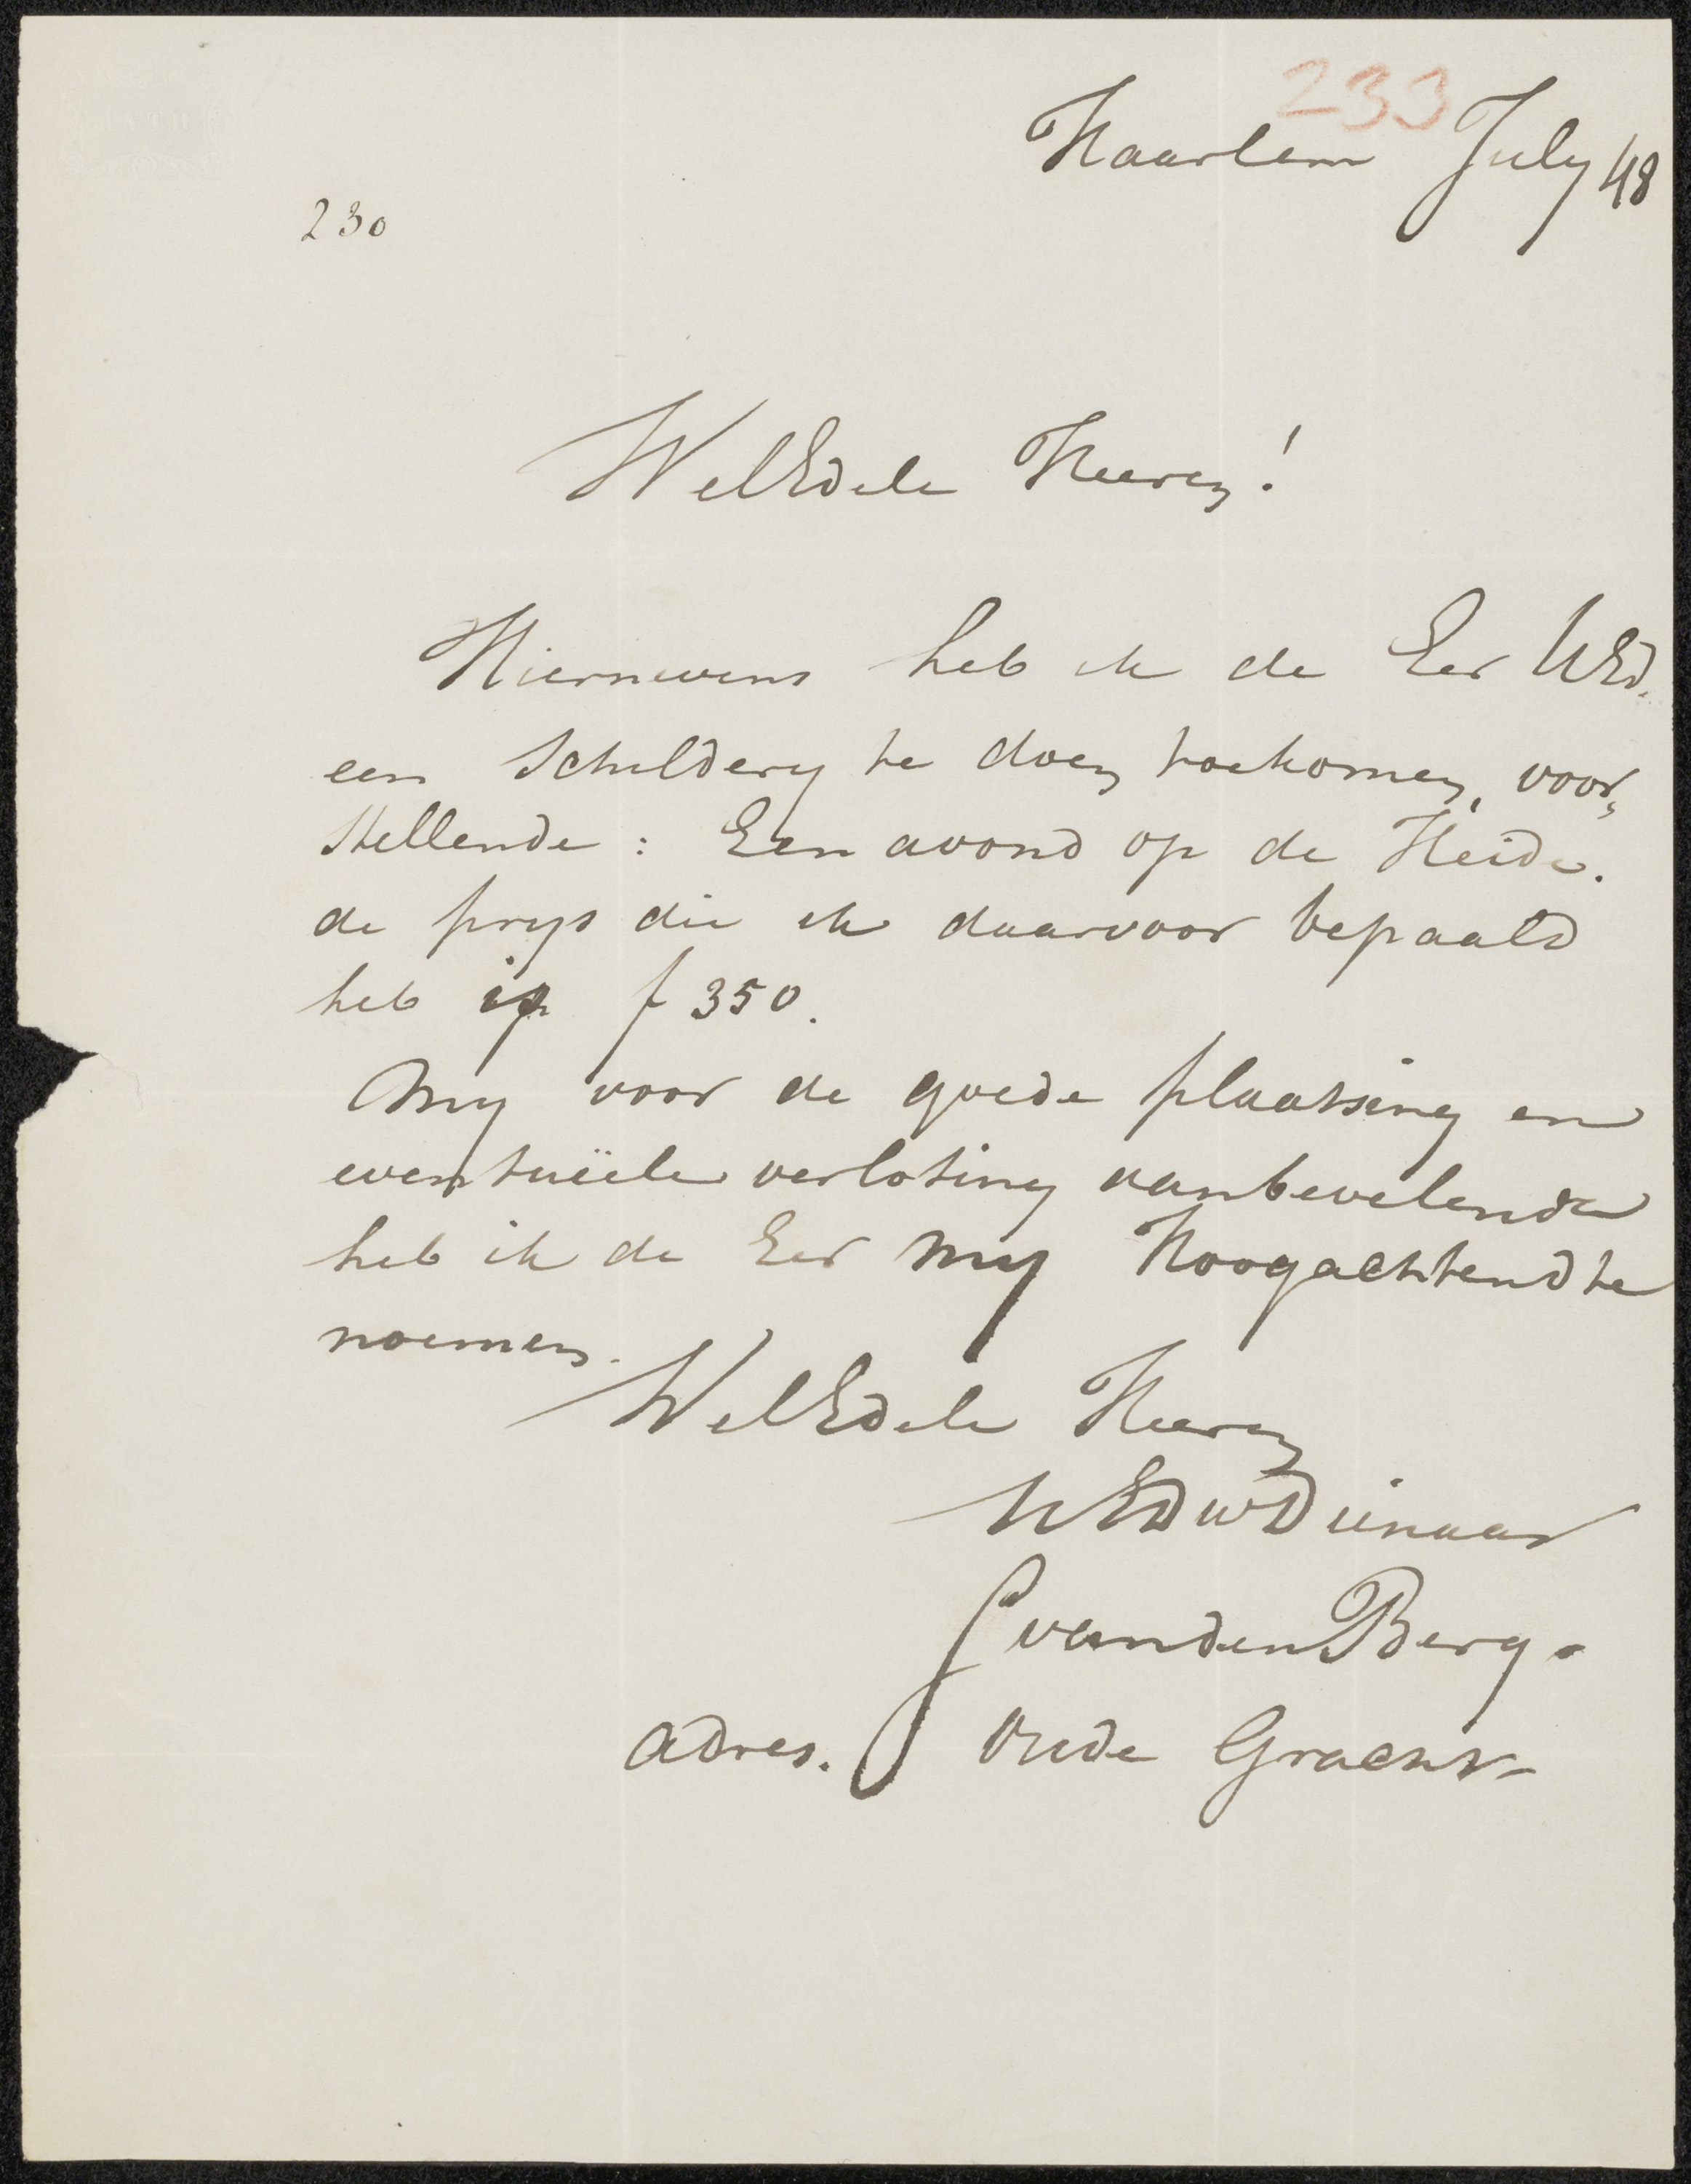 233
Haarlem July 48
230
WelEdele Heeren!
Hiernevens heb ik de Eer UEd.
een Schildery te doen toekomen, voor,
stellende : Een avond op de Heide.
de prys die ik daarvoor bepaald
heb is f 350.
My voor de goede plaatsing en
eventuëele verloting aanbevelende
heb ik de Eer my Hoogachtend te
noemen.
WelEdele Heeren
UEDwDienaar
S vandenBerg.
adres. Oude Gracht